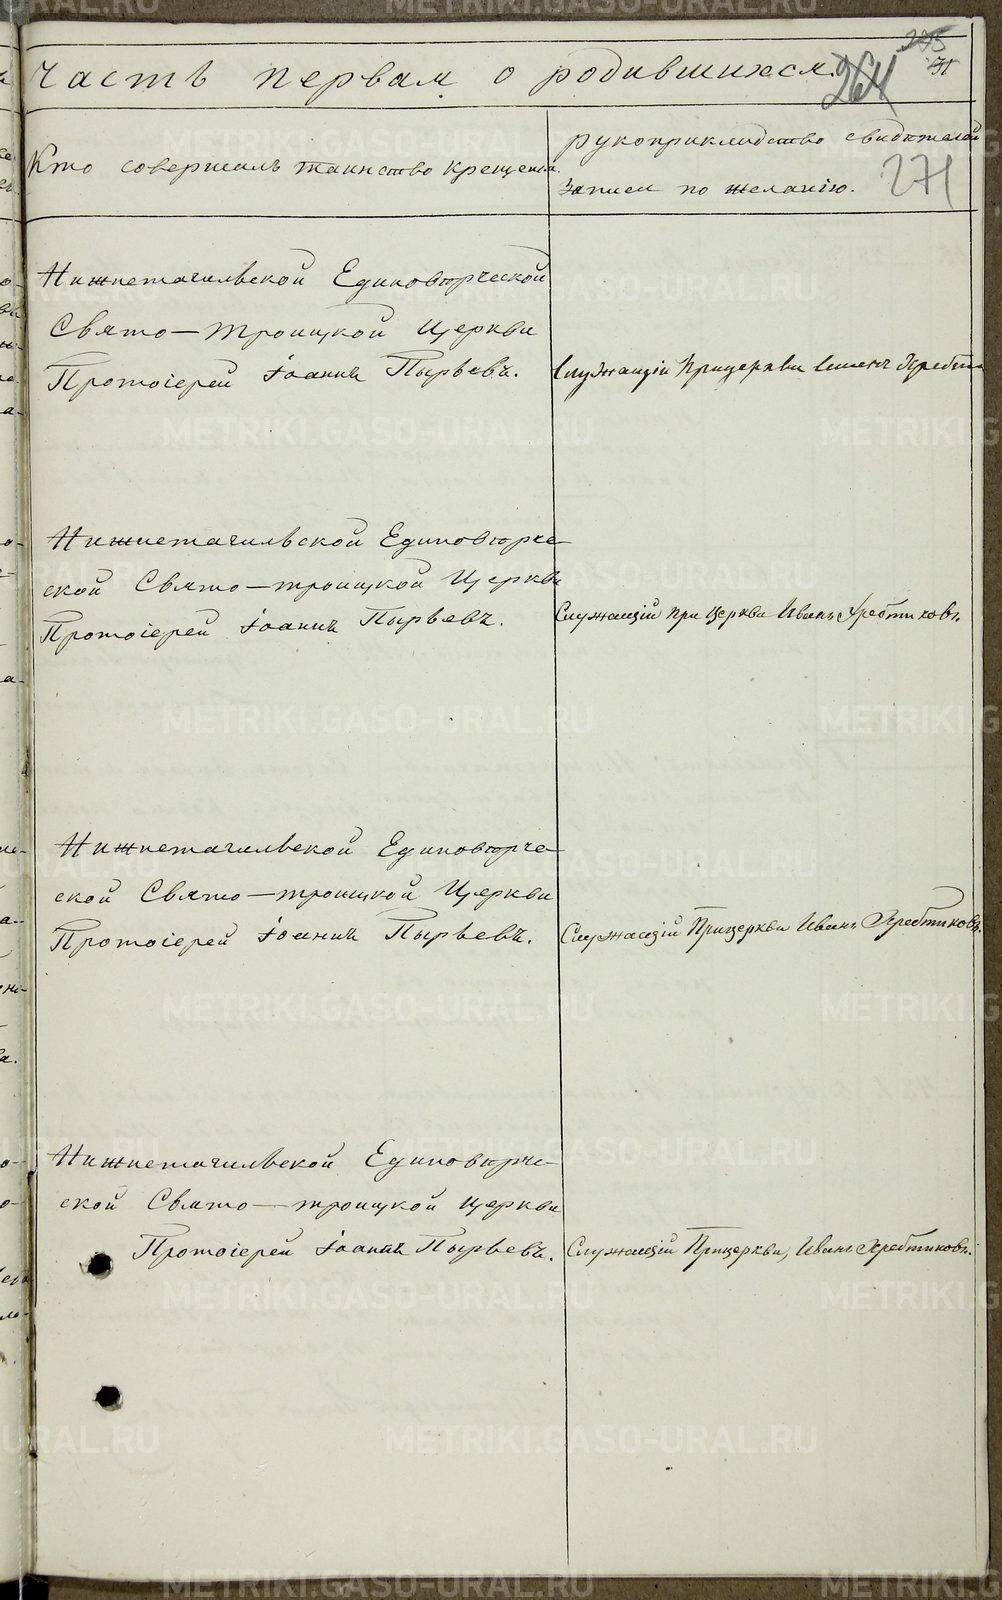 Часть первая о родившихся.
264
271
Кто совершалъ таинство крещенія.
рукоприкладство свидѣтелей
записи по желанію.
Нижнетагильской Единовѣрческой
Свято-Троицкой Церкви
Протоіерей Іоаннъ Пырьевъ.
Служащій При церкви
Нижнетагильской Единовѣрче-
ской Свято-троицкой Церкви
Протоіерей Іоаннъ Пырьевъ.
Служащій при Церкви Иванъ Хребтиковъ.
Нижнетагильской Единовѣрче-
ской Свято-троицкой Церкви
Протоіерей Іоаннъ Пырьевъ.
Служащій При церкви Иванъ Хребтиковъ.
Нижнетагильской Единовѣрче-
ской Свято-троицкой Церкви
Протоіерей Іоаннъ Пырьевъ.
Служащій При церкви, Иванъ Хребтиковъ.
METRIKI.GASO-URAL.RU